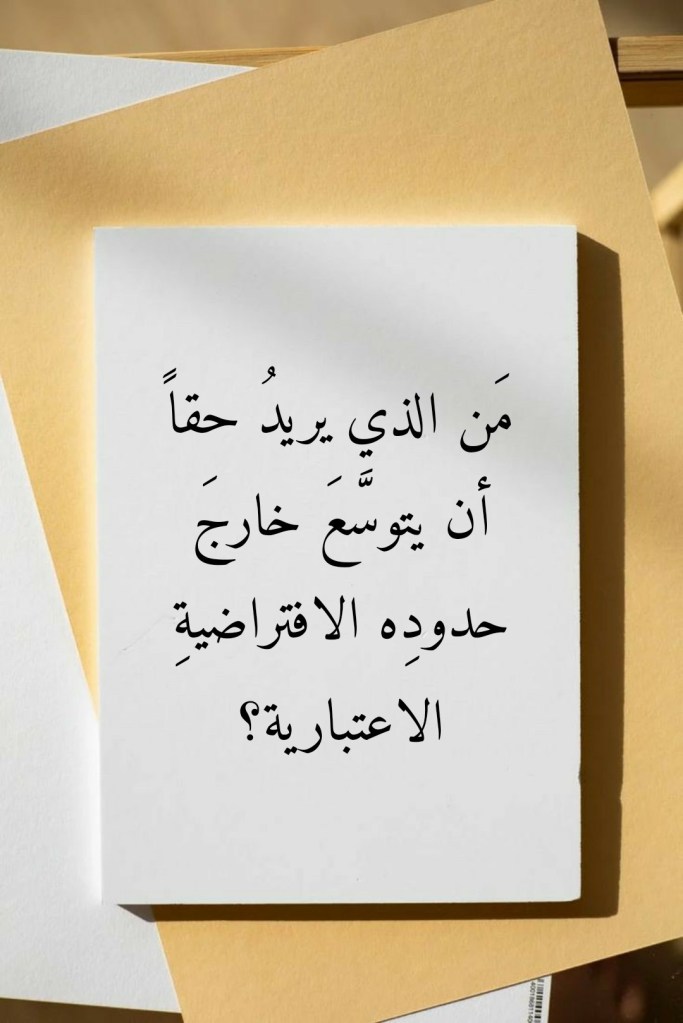 مَن الذي يريدُ حقاً
أن يتوسَّعَ خارجَ
حدودِه الافتراضيةِ
الاعتبارية؟